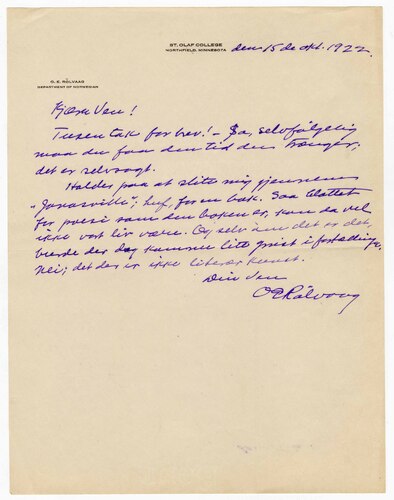 ST. OLAF COLLEGE
NORTHFIELD, MINNESOTA
den 15de okt. 1922.
O. E. RÖLVAAG
DEPARTMENT OF NORWEGIAN
Kjære Ven!
Tusen tak for brev! – Ja, selvfölgelig
maa du faa den tid du trænger;
det er selvsagt.
Holder paa at slite mig gjennem
"Jonasville", huf, for en bok. Saa blottet
for poesi som den boken er, kan da vel
ikke vort liv være. Og selv om det er det,
burde der dog komme litt greit i fortælling.
Nei; det der er ikke literær kunst.
Din Ven
O E Rölvaag